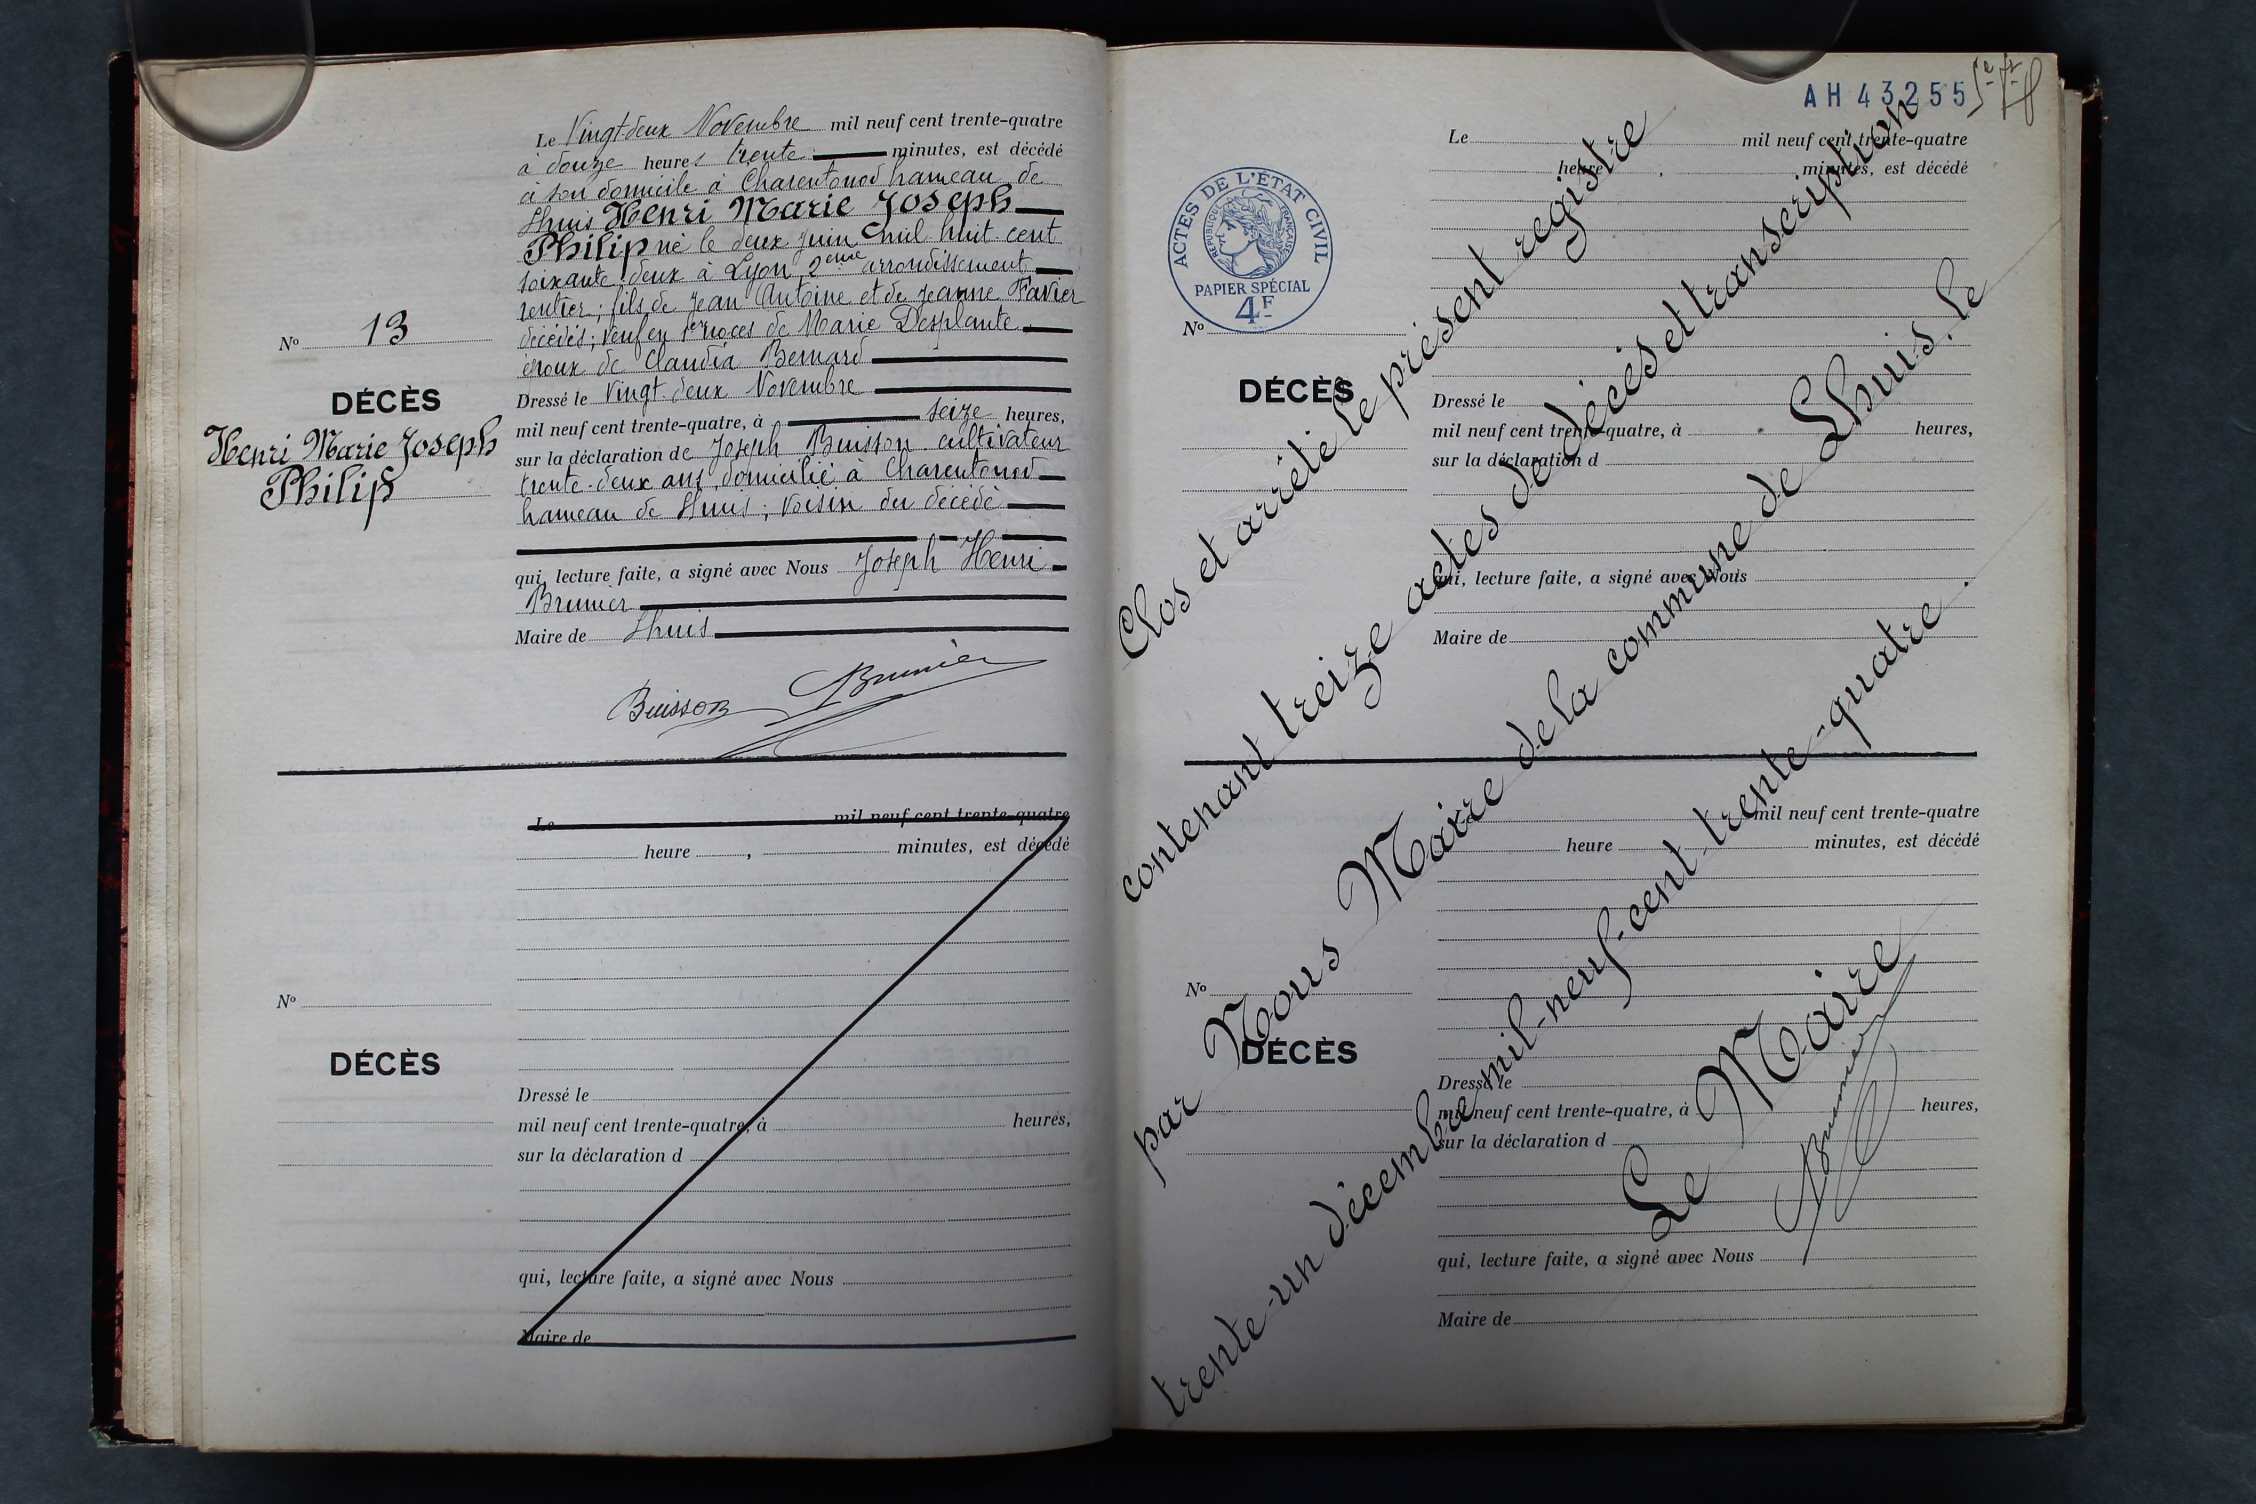 Le Vingt-deux Novembre mil neuf cent trente-quatre
à douze heures trente minutes, est décédé
à son domicile à Charentonod hameau de
Lhuis Henri Marie Joseph
Philip né le deux juin mil huit cent
soixante deux à Lyon 2eme arrondissement
rentier ; fils de Jean Antoine et de Jeanne Favier
décédés ; veuf en 1eres noces de Marie Desplante
époux de Claudia Bernard
Nº 13
DÉCÈS
Henri Marie Joseph
Philip
Dressé le Vingt-deux Novembre
mil neuf cent trente-quatre, à seize heures,
sur la déclaration de Joseph Buisson cultivateur
trente-deux ans, domicilié à Charentonod
hameau de Lhuis ; voisin du décédé
qui, lecture faite, a signé avec Nous Joseph Henri
Brunier
Maire de Lhuis
Buisson Brunier
Le mil neuf cent trente-quatre
heure , minutes, est décédé
Nº
DÉCÈS
Dressé le
mil neuf cent trente-quatre, à heures,
sur la déclaration d
qui, lecture faite, a signé avec Nous
Maire de
AH 43255
Le mil neuf cent trente-quatre
heure minutes, est décédé
ACTES DE L'ÉTAT CIVIL
RÉPUBLIQUE FRANÇAISE
PAPIER SPÉCIAL
4F
Nº
DÉCÈS
Dressé le
mil neuf cent trente-quatre, à heures,
sur la déclaration d
qui, lecture faite, a signé avec Nous
Maire de
Clos et arrêté le présent registre
contenant treize actes de décès et transcription
par Nous Maire de la commune de Lhuis, le
trente-un décembre mil-neuf-cent-trente-quatre.
Le Maire
Brunier
mil neuf cent trente-quatre
heure minutes, est décédé
Nº
DÉCÈS
Dressé le
mil neuf cent trente-quatre, à heures,
sur la déclaration d
qui, lecture faite, a signé avec Nous
Maire de